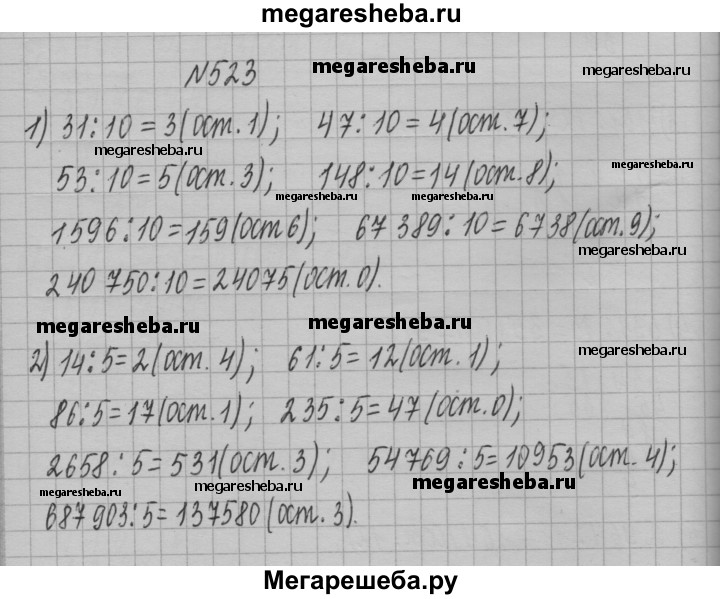 megaresheba.ru
N523
megaresheba.ru
megaresheba.ru
1) 31:10=3(ост. 1); 47:10=4(ост. 7);
megaresheba.ru
megaresheba.ru
53:10=5(ост. 3); 148:10=14(ост. 8);
megaresheba.ru
megaresheba.ru
1596:10=159(ост 6); 67 389:10=6738(ост. 9);
megaresheba.ru
240 750:10=24075(ост. 0).
megaresheba.ru
megaresheba.ru
megaresheba.ru
2) 14:5=2(ост. 4); 61:5=12(ост. 1);
86:5=17(ост. 1); 235:5=47(ост. 0);
2658:5=531(ост. 3); 54769:5=10953(ост. 4);
megaresheba.ru
megaresheba.ru
megaresheba.ru
687 903:5=137580(ост. 3).
Мегарешеба.ру